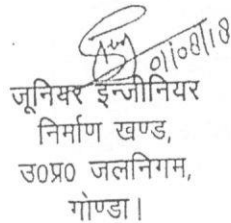 01/08/18
जूनियर इन्जीनियर
निर्माण खण्ड,
उ0प्र0 जलनिगम,
गोण्डा।